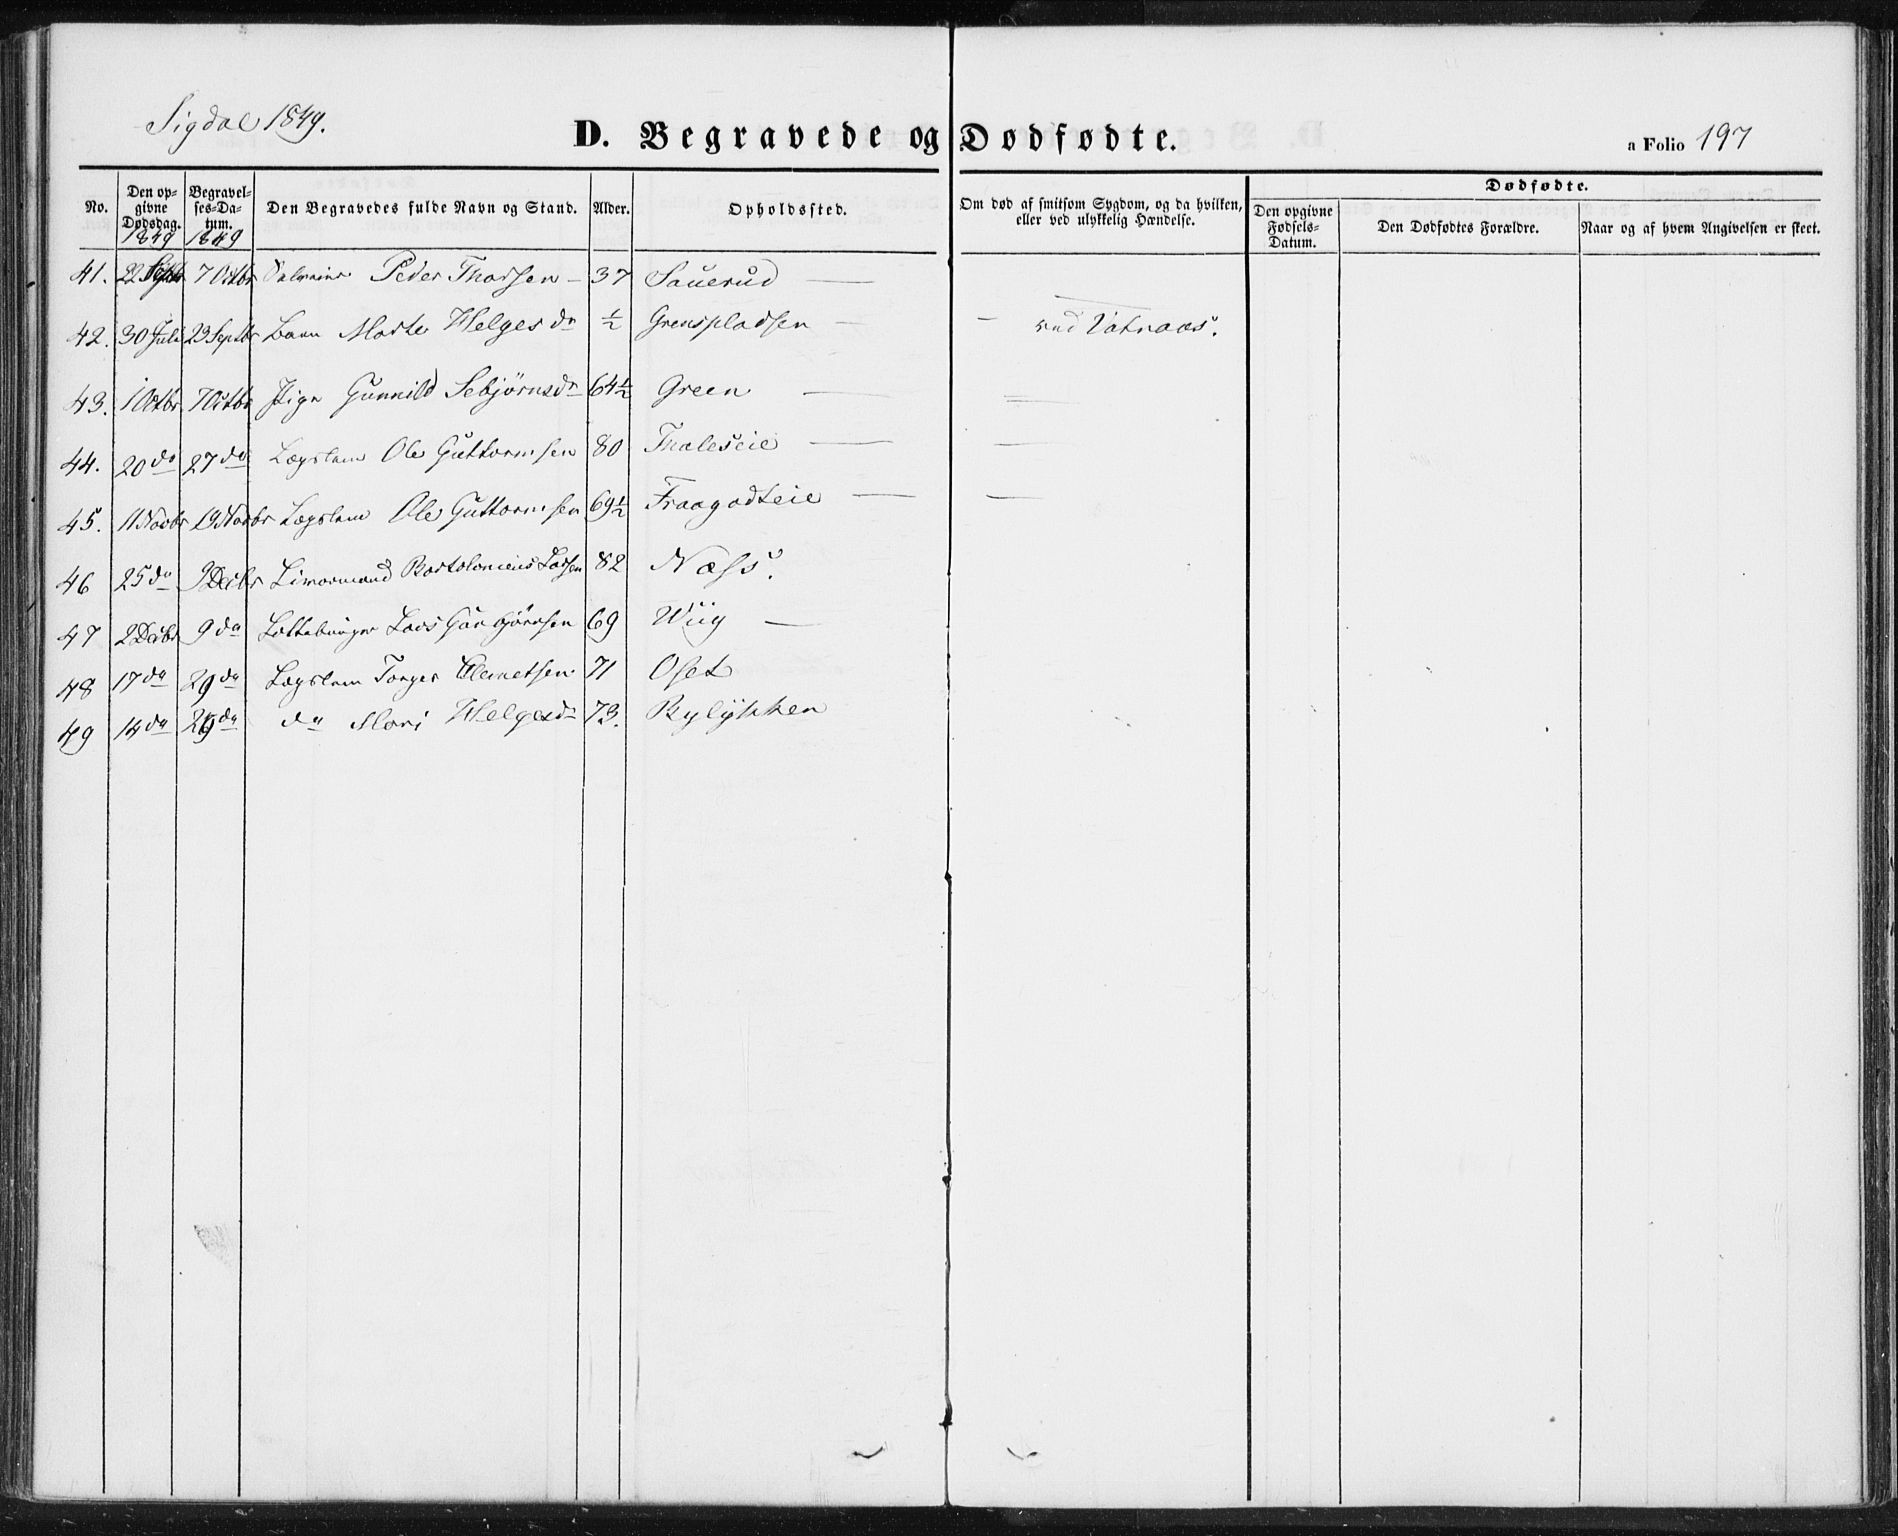 Sigdal 1849.
D. Begravede og Dødfødte.
a Folio 197
No. Den opgivne Dødsdag. Begravelses-Datum. Den Begravedes fulde Navn og Stand. Alder. Opholdssted. Om død af smitsom Sygdom, og da hvilken, eller ved ulykkelig Hændelse. Dødfødte.
Den opgivne Fødsels-Datum. Den Dødfødtes Forældre. Naar og af hvem Angivelsen er skeet.
1849 1849
41. 22 Septbr 7 Octbr Peder Thorsen – 37 Sauerud —
42. 30 Juli 23 Septbr Barn Marte Helgesdr ½ Grenspladsen — – ved Vatnaas.
43. 1 Octbr 7 Octbr Pige Gunnild Sebjørnsdr 64½ Green —
44. 20 do 27 do Lægslem Ole Guttormsen 80 Thaleseie —
45. 11 Novbr 19 Novbr Lægslem Ole Guttormsen 69½ Fraagodteie —
46 25 do 9 Decbr Bartolomeus Larsen 82 Næss.
47 2 Decbr 9 do Lars Gunbjørnsen 69 Wiig —
48 17 do 29 do Lægslem Torger Clemetsen 71 Oset
49 14 do 29 do do Mari Helgesdr 73. Bylykken